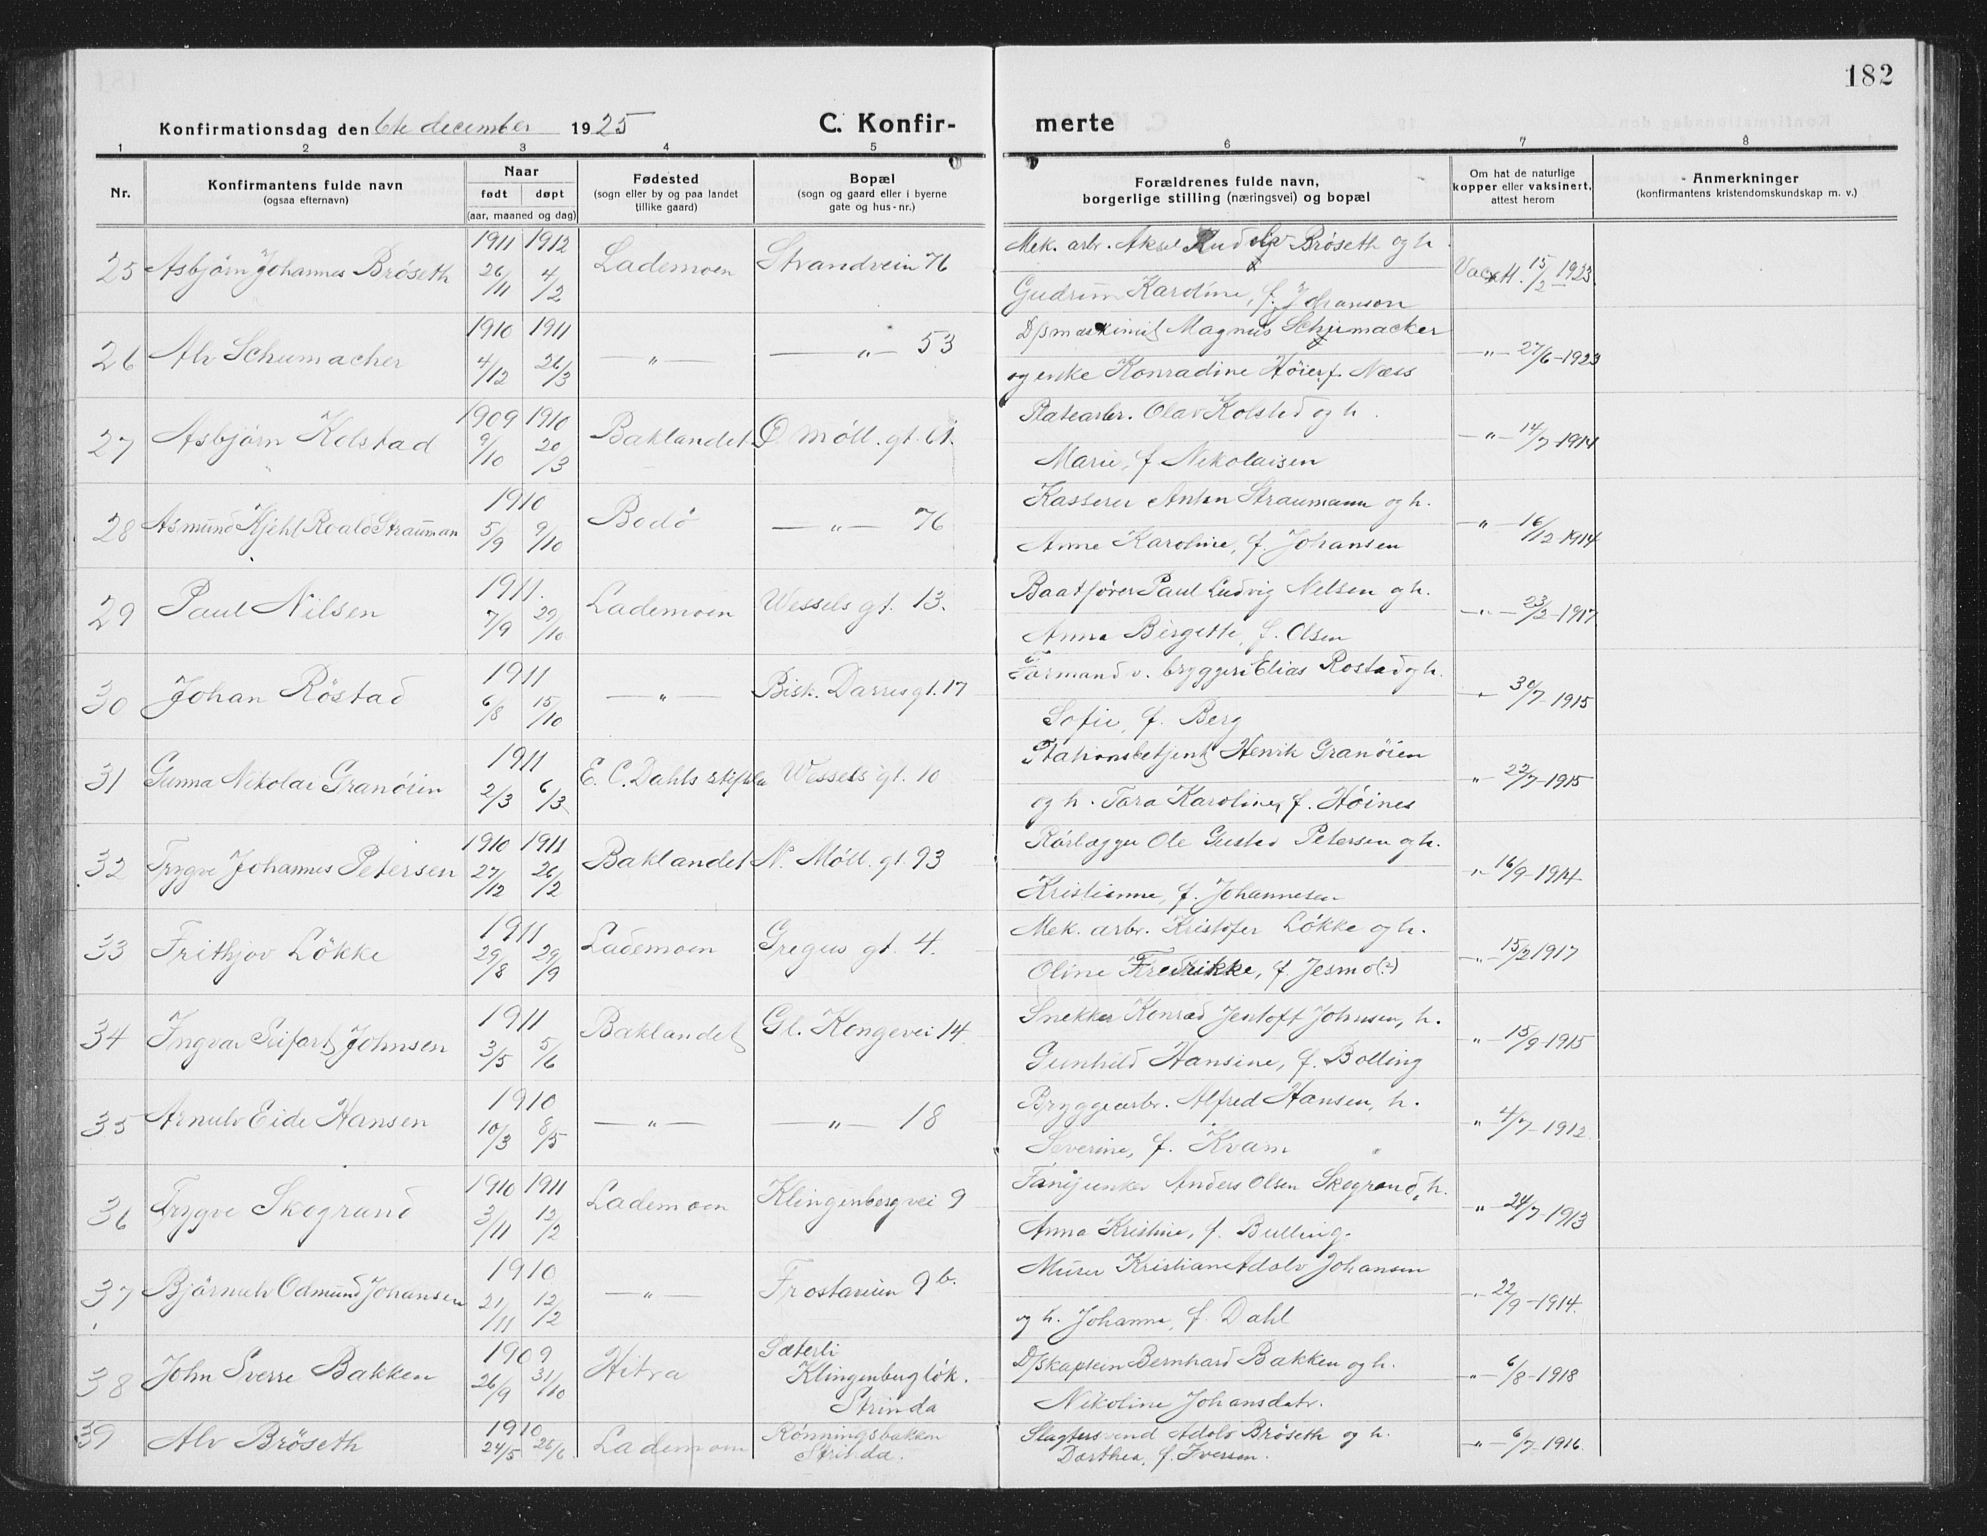 182
Konfirmationsdag den 6te december 1925 C. Konfir- merte
1 2 3 4 5 6 7 8
Nr. Konfirmantens fulde navn (ogsaa efternavn) Naar født døpt (aar, maaned og dag) Fødested (sogn eller by og paa landet tillike gaard) Bopæl (sogn og gaard eller i byerne gate og hus-nr.) Forældrenes fulde navn, borgerlige stilling (næringsvei) og bopæl Om hat de naturlige kopper eller vaksinert, attest herom Anmerkninger (konfirmantens kristendomskundskap m. v.)
25 Asbjørn Johannes Brøseth 1911 26/11 1912 4/2 Lademoen Strandvein 76 Mek. arb. Aksel Brøseth og h.
Gudrun Karoline, f. Johanson 15/2 1923
26 Alv Schumacher 1910 4/12 1911 26/3 — " — — " — 53 Magnus Schumacker
og enke Konradine Høier f. Næss — " — 27/6-1923
27 Asbjørn Kolstad 1909 9/10 1910 20/3 Baklandet Ø. Möll. gt. 61. Platearbr. Olav Kolsted og h.
Marie, f. Nikolaisen — " — 14/7-1914
28 Asmund Kjehl Roald Strauman 1910 5/9 9/10 Bodö — " — 76 Kasserer Anton Straumann og h.
Anne Karoline, f. Johansen — " — 16/12-1914
29 Paul Nilsen 1911. 7/9 29/10 Lademoen Wessels gt. 13. Baatfører Paul Ludvig Nelsen og h.
Anna Bergette, f. Olsen — " — 23/2-1917
30 Johan Röstad 1911 6/8 15/10 — " — Bisk. Darres gt. 17 Formand v. bryggeri Elias Rostad og h.
Sofie, f. Berg — " — 30/7-1915
31 Gunna Nikolai Granöien 1911 2/3 6/3 E. C. Dahls Wessels gt. 10 Stationsbetjent Henrik Granöien
og h. Tara Karoline, f. Höines " 22/7-1915
32 Trygve Johannes Petersen 1910 27/12 1911 26/2 Baklandet N. Möll. gt. 93 Rörlægger Ole Gustav Petersen og h.
Kristianne, f. Johannesen " 16/9-1914
33 Frithjov Lökke 1911 29/8 29/9 Lademoen Gregus gt. 4. Mek. arbr. Kristofer Lökke og h.
Oline Fredrikke, f. Jesmo (?) — " — 15/2 1917
34 Ingvar Johnsen 1911 3/5 5/6 Baklandet Gl. Kongevei 14 Snekker Konrad Jentoft Johnsen, h.
Gunhild Hansine, f. Bolling " 15/9-1915
35 Arnulv Eide Hansen 1910 10/3 8/5 — " — — " — 18 Bryggearbr. Alfred Hansen, h.
Severine, f. Kvam " 4/7-1912
36 Trygve Skogrand 1910 3/11 1911 12/2 Lademoen Klingenberg vei 9 Fanejunker Anders Olsen Skogrand, h.
Anna Kristine, f. Bulling. " 24/7-1913
37 Björnulv Odmund Johansen 1910 21/11 12/2 — " — Frostaveien 9 b. Murer Kristian Adolv Johansen
og h. Johanna, f. Dahl — " — 22/9-1914.
38 John Sverre Bakken 1909 26/9 31/10 Hitra Sæterli
Klingenberg løk.
Strinda D/skaptein Bernhard Bakken og h.
Nikoline Johansdatr. — " — 6/8-1918
39 Alv Bröseth 1910 24/5 26/6 Lademoen Rønningsbakken
Strinda. Slagtersvend Adolv Bröseth og h.
Dorthea, f. Iversen. — " — 6/7-1916